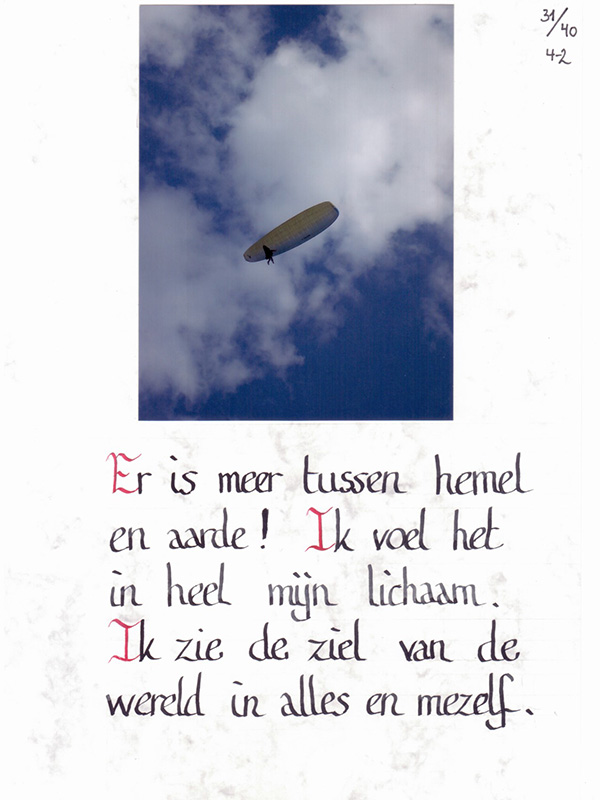 31/40
4-2
Er is meer tussen hemel
en aarde! Ik voel het
in heel mijn lichaam.
Ik zie de ziel van de
wereld in alles en mezelf.